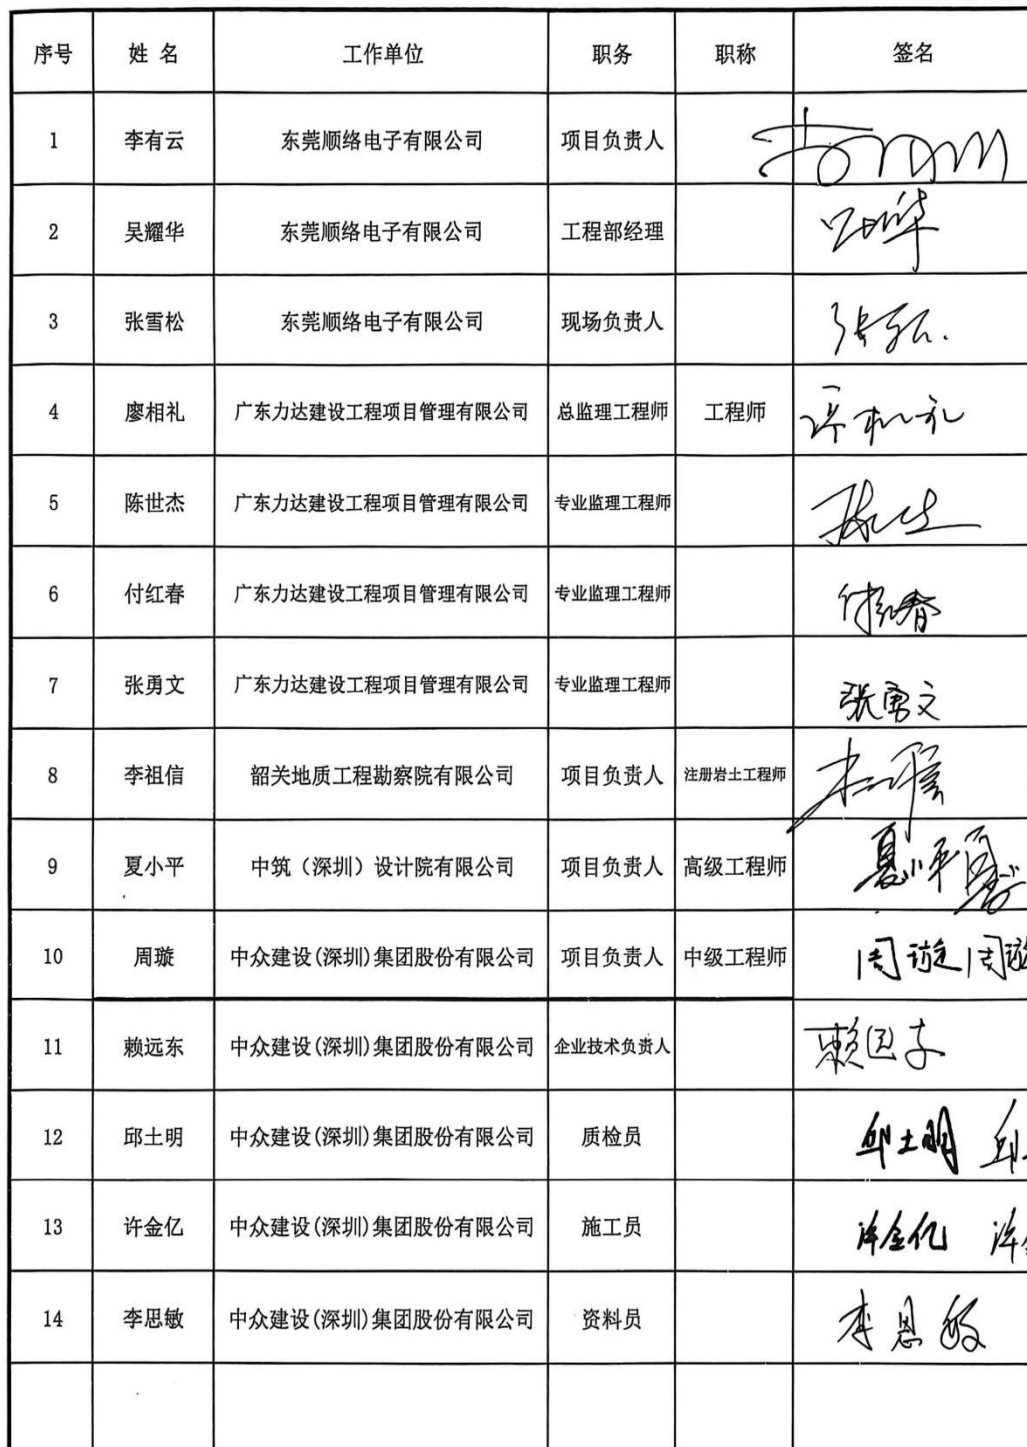 序号 姓 名 工作单位 职务 职称 签名
1 李有云 东莞顺络电子有限公司 项目负责人
2 吴耀华 东莞顺络电子有限公司 工程部经理
3 张雪松 东莞顺络电子有限公司 现场负责人
4 廖相礼 广东力达建设工程项目管理有限公司 总监理工程师 工程师
5 陈世杰 广东力达建设工程项目管理有限公司 专业监理工程师
6 付红春 广东力达建设工程项目管理有限公司 专业监理工程师 付红春
7 张勇文 广东力达建设工程项目管理有限公司 专业监理工程师 张勇文
8 李祖信 韶关地质工程勘察院有限公司 项目负责人 注册岩土工程师
9 夏小平 中筑（深圳）设计院有限公司 项目负责人 高级工程师 夏小平
10 周璇 中众建设(深圳)集团股份有限公司 项目负责人 中级工程师 周璇 周璇
11 赖远东 中众建设(深圳)集团股份有限公司 企业技术负责人 赖远东
12 邱土明 中众建设(深圳)集团股份有限公司 质检员 邱土明 邱
13 许金亿 中众建设(深圳)集团股份有限公司 施工员 许金亿 许
14 李思敏 中众建设(深圳)集团股份有限公司 资料员 李思敏